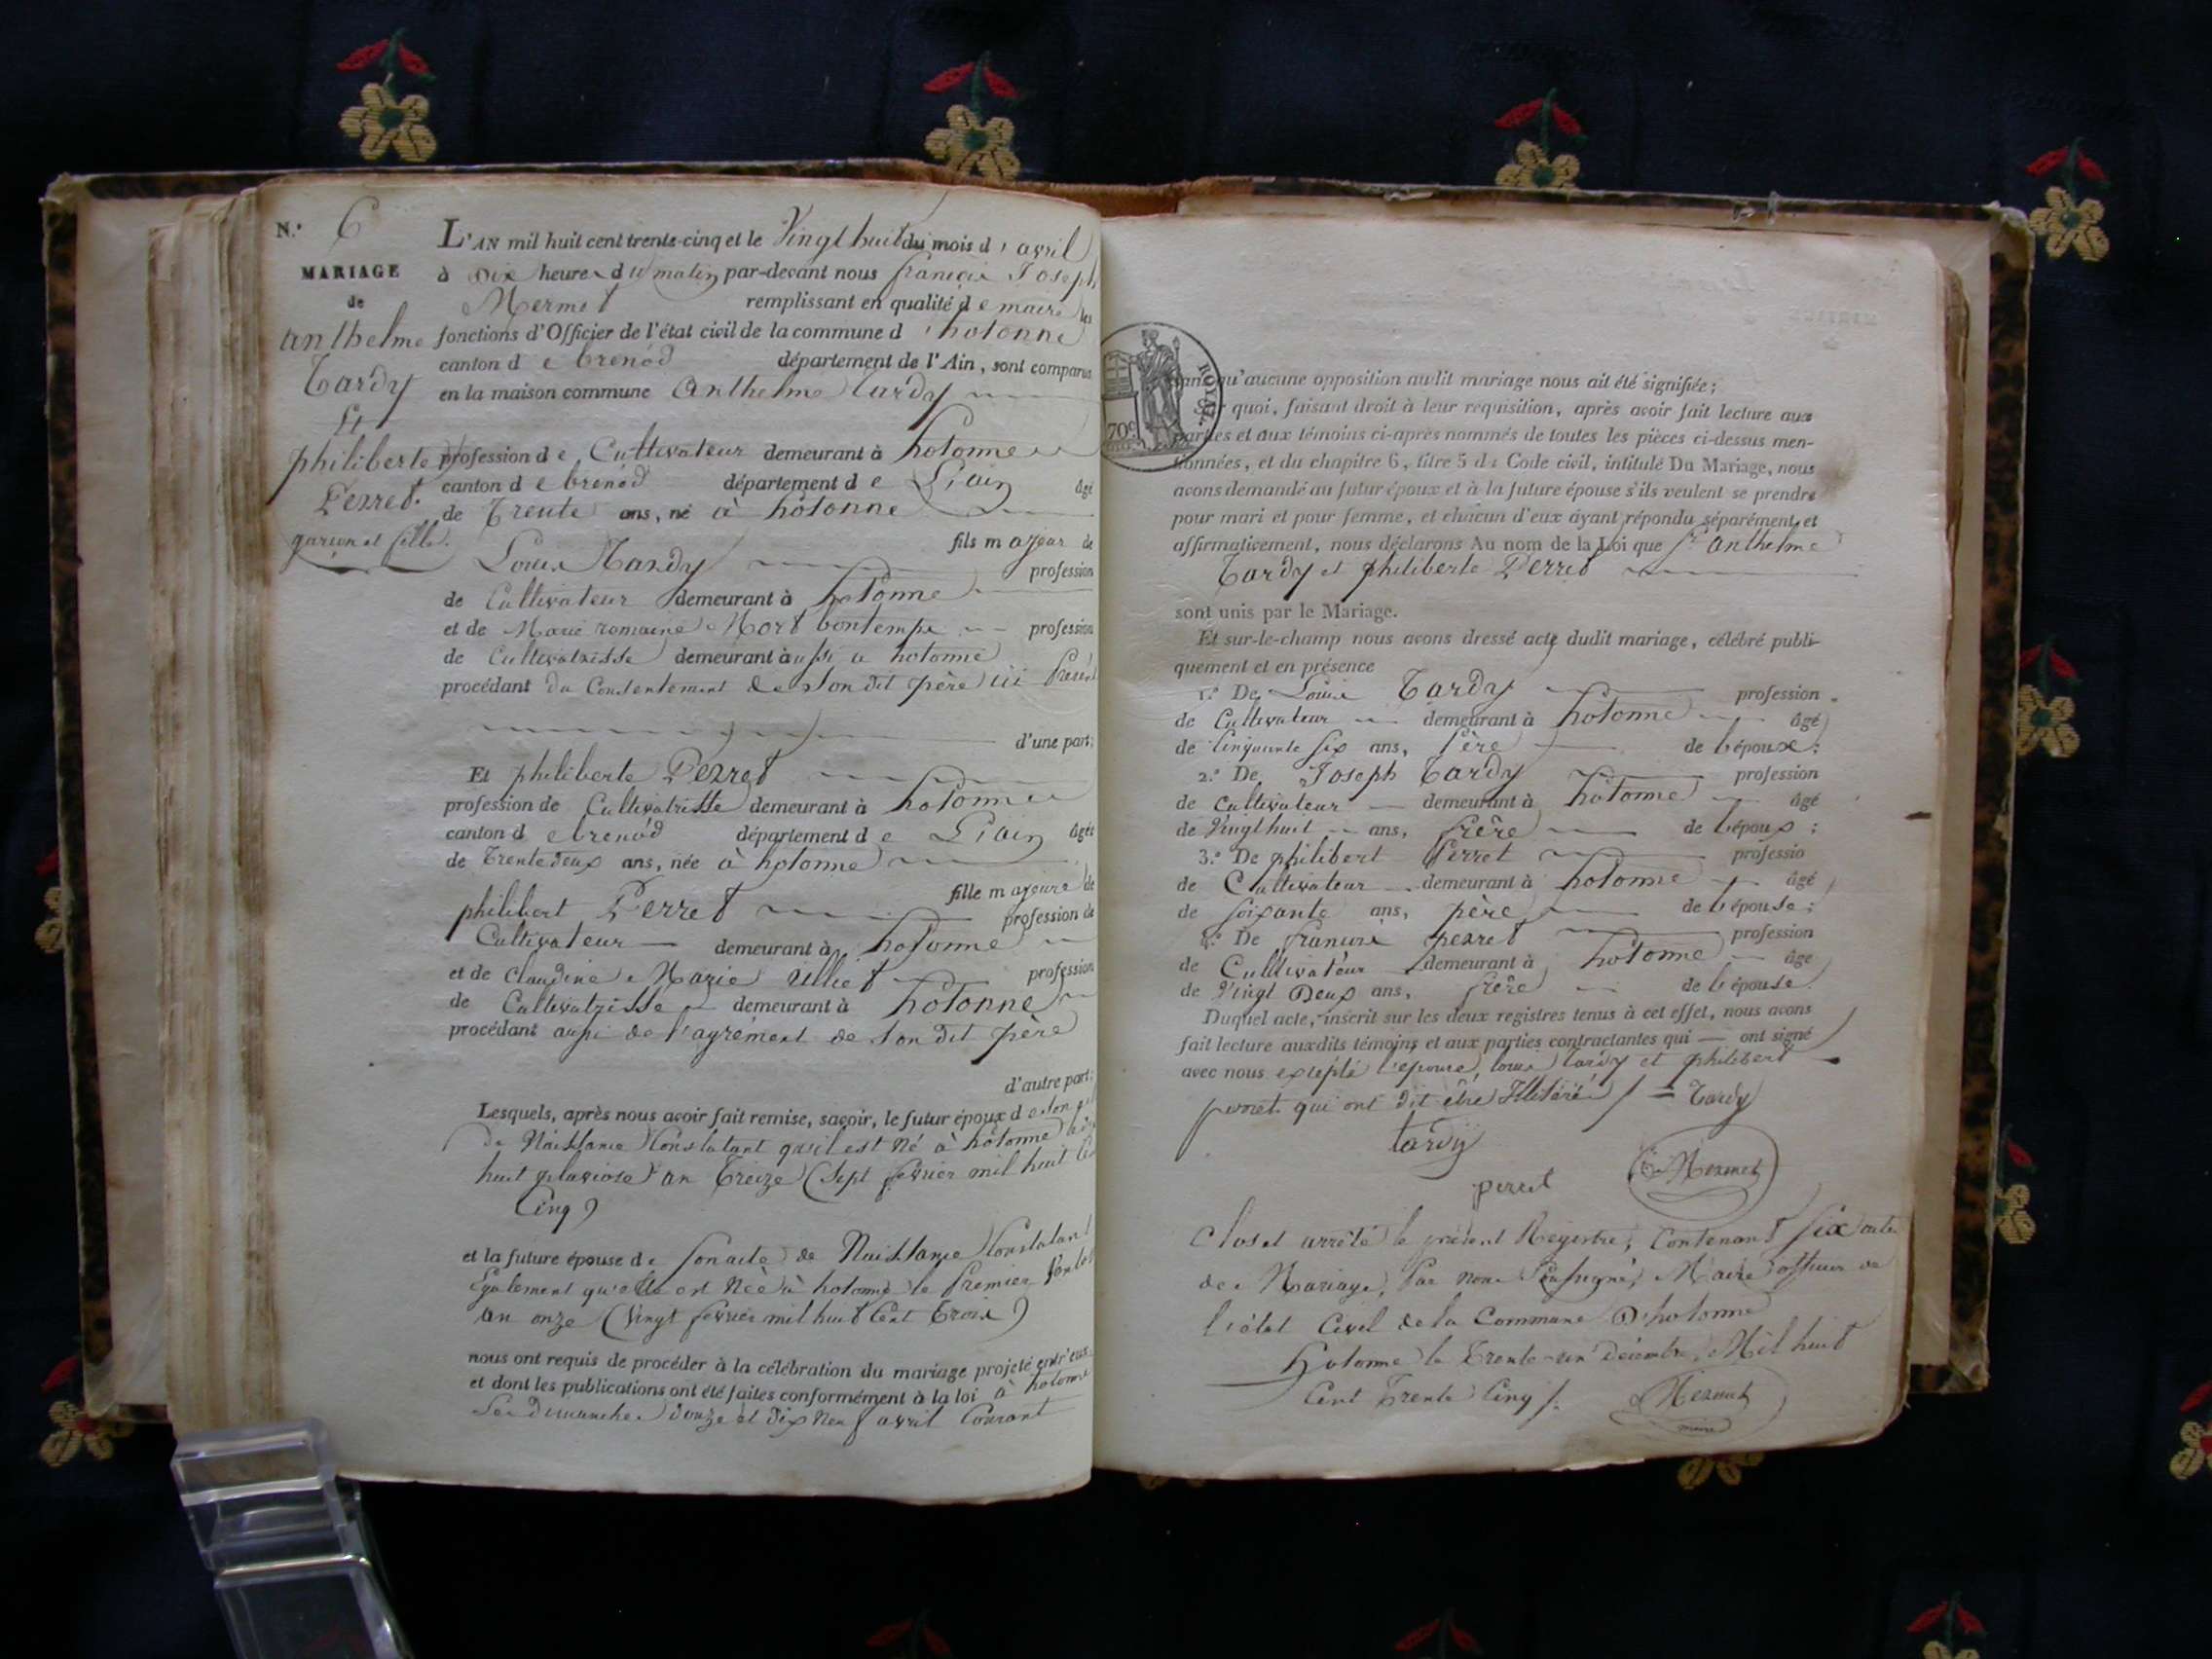 N.° 6
MARIAGE
de
anthelme
Tardy
Et
philiberte
Perret.
garçon et fille.
L'AN mil huit cent trente-cinq et le Vingt huit du mois d'avril
à Dix heures du matin par-devant nous françois Joseph
Mermet remplissant en qualité de maire les
fonctions d'Officier de l'état civil de la commune d'hotonne
canton de brenod département de l'Ain, sont comparus
en la maison commune Anthelme tardy
profession de Cultivateur demeurant à hotonne
canton de brenod département de L'ain âgé
de Trente ans, né à hotonne
fils majeur de
Louis Tardy profession
de Cultivateur demeurant à hotonne
et de Marie romaine Mort bontemps profession
de Cultivatrisse demeurant aussi a hotonne
procédant du Consentement de son dit père ici présent
d'une part;
Et philiberte Perret
profession de Cultivatrisse demeurant à hotonne
canton de brenod département de L'ain âgée
de Trente deux ans, née à hotonne
fille majeure de
philibert Perret profession de
Cultivateur demeurant à hotonne
et de Claudine Marie Ulliet profession
de Cultivatrisse demeurant à hotonne
procédant aussi de l'agrément de son dit père
d'autre part;
Lesquels, après nous avoir fait remise, savoir, le futur époux de son
de Naissance Constatant qu'il est Né à hotonne le dix
huit pluviose an Treize (Sept février mil huit Cent
Cinq)
et la future épouse de son acte de Naissance Constatant
Egalement qu'elle est Née à hotonne le premier Ventose
an onze (Vingt fevrier mil huit Cent Trois)
nous ont requis de procéder à la célébration du mariage projeté entr'eux
et dont les publications ont été faites conformément à la loi à hotonne
Les dimanches douze et dix neuf avril Courant
ROYAL.
70c
sans qu'aucune opposition audit mariage nous ait été signifiée;
quoi, faisant droit à leur requisition, après avoir fait lecture aux
parties et aux témoins ci-après nommés de toutes les pièces ci-dessus men-
tionnées, et du chapitre 6, titre 5 du Code civil, intitulé Du Mariage, nous
avons demandé au futur époux et à la future épouse s'ils veulent se prendre
pour mari et pour femme, et chacun d'eux ayant répondu séparément et
affirmativement, nous déclarons Au nom de la Loi que Sr anthelme
Tardy et philiberte Perret
sont unis par le Mariage.
Et sur-le-champ nous avons dressé acte dudit mariage, célébré publi-
quement et en présence
1.° De Louis Tardy profession
de Cultivateur demeurant à hotonne âgé
de Cinquante six ans, père de l'époux;
2.° De Joseph Tardy profession
de cultivateur demeurant à hotonne âgé
de Vingt huit ans, frère de l'époux;
3.° De philibert Perret professio
de Cultivateur demeurant à hotonne âgé
de soixante ans, père de l'épouse;
4.° De francois perret profession
de Cultivateur demeurant à hotonne âgé
de Vingt Deux ans, frère de l'épouse.
Duquel acte, inscrit sur les deux registres tenus à cet effet, nous avons
fait lecture auxdits témoins et aux parties contractantes qui — ont signé
avec nous excépté l'epouse, louis tardy et philibert
perret qui ont dit être Illitéré / = Tardy
tardy
perret Mermet
Clos et arrêté le présent Régistre, Contenant six actes
de Mariage, par nous soussigné, Maire officier de
l'état Civil de la Commune D'hotonne
hotonne le Trente-un décembre, Mil huit
Cent Trente Cinq /. Mermet
maire